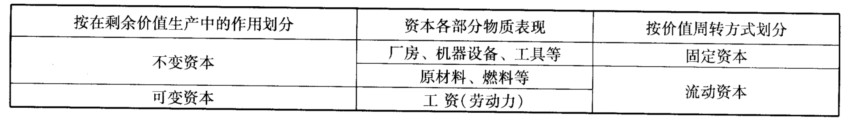 按在剩余价值生产中的作用划分 资本各部分物质表现 按价值周转方式划分
不变资本 厂房、机器设备、工具等 固定资本
原材料、燃料等 流动资本
可变资本 工资(劳动力)